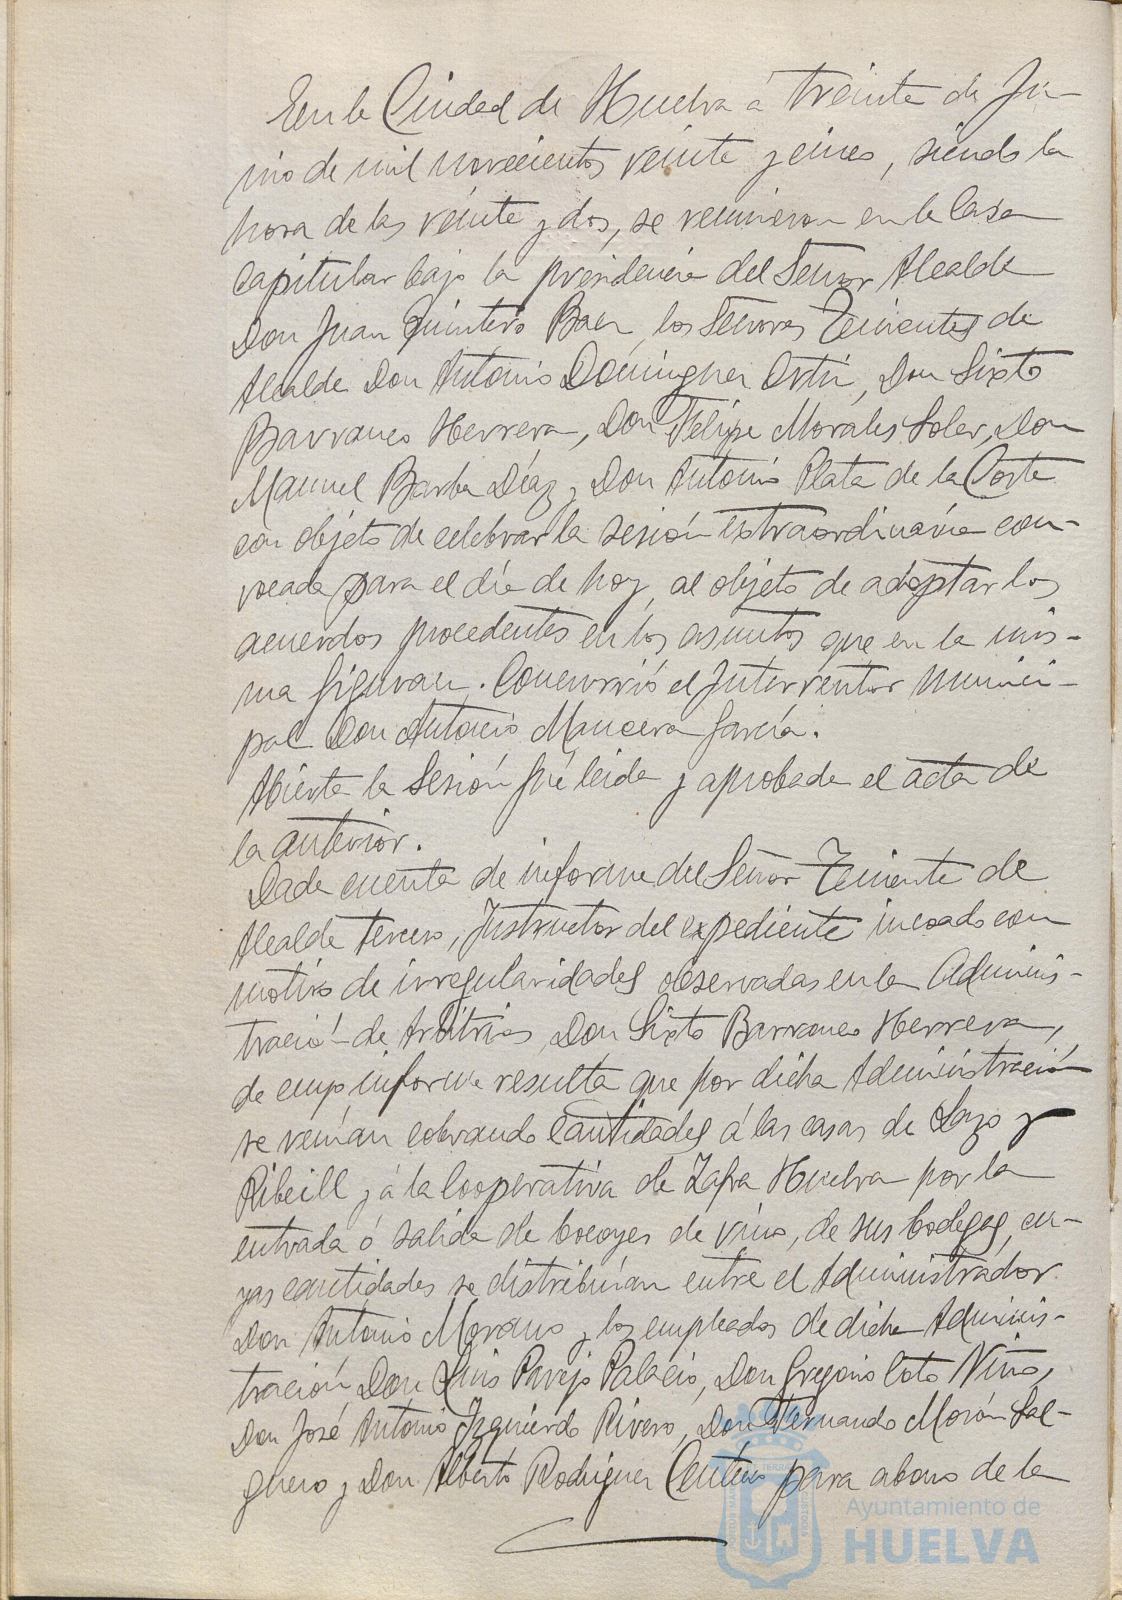 En la Ciudad de Huelva á treinta de Ju-
nio de mil novecientos veinte y cinco, siendo la
hora de las veinte y dos, se reunieron en la Casa
Capitular bajo la presidencia del Señor Alcalde
Don Juan Quintero Baez, los Señores Tenientes de
Alcalde Don Antonio Dominguez Ortiz, Don Sixto
Barranco Herrera, Don Felipe Morales Soler, Don
Manuel Barba Díaz y Don Antonio Plata de la Corte
con objeto de celebrar la sesión extraordinaria con-
vocada para el día de hoy, al objeto de adoptar los
acuerdos procedentes en los asuntos que en la mis-
ma figuran. Concurrió el Interventor Munici-
pal Don Antonio Mancera García.
Abierta la Sesión fué leida y aprobada el acta de
la anterior.
Dada cuenta de informe del Señor Teniente de
Alcalde tercero, Instructor del expediente incoado con
motivo de irregularidades observadas en la Adminis-
tración de Arbitrios, Don Sixto Barranco Herrera,
de cuyo informe resulta que por dicha Administración
se venían cobrando cantidades á las casas de Lazo y
Ribeill y á la Cooperativa de Zafra Huelva por la
entrada ó salida de bocoyes de vino, de sus bodegas, cu-
yas cantidades se distribuían entre el Administrador
Don Antonio Morano y los empleados de dicha Adminis-
tración Don Luis Parejo Palacio, Don Gregorio Coto Niño,
Don José Antonio Izquierdo Rivero, Don Fernando Morón Sal-
guero y Don Alberto Rodriguez Centeno para abono de la
Ayuntamiento de
HUELVA